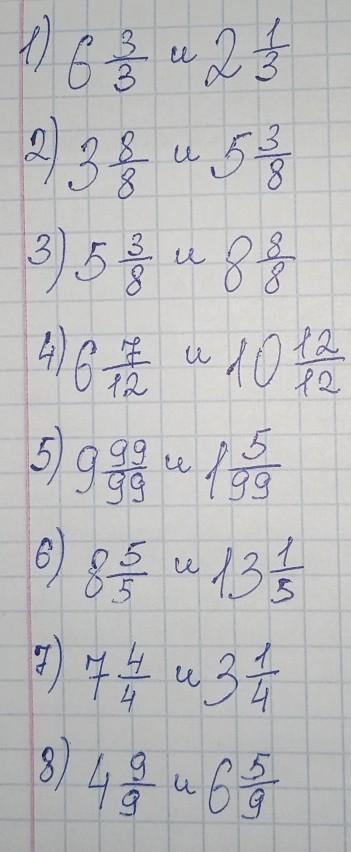 1) 6 3/3 и 2 1/3
2) 3 8/8 и 5 3/8
3) 5 3/8 и 8 8/8
4) 6 7/12 и 10 12/12
5) 9 99/99 и 1 5/99
6) 8 5/5 и 13 1/5
7) 7 4/4 и 3 1/4
8) 4 9/9 и 6 5/9